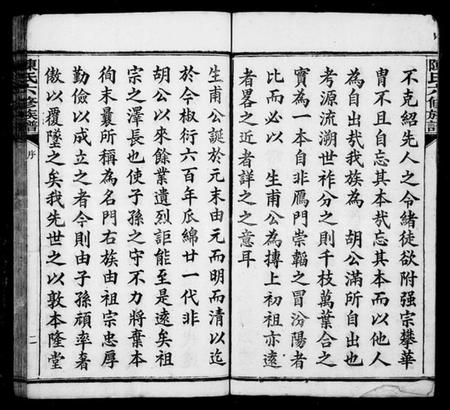 陳氏六修族譜
不克紹先人之令緒徒欲附强宗攀華
胄不且自忘其本哉忘其本而以他人
為自出哉我族為 胡公滿所自出也
考源流溯世祚分之則千枝萬葉合之
實為一本自非雁門崇韜之冒汾陽者
比而必以 生甫公為摶上初祖亦遠
者畧之近者詳之之意耳
生甫公誕於元末由元而明而清以迄
於今椒衍六百年瓜綿廿一代非
胡公以來餘業遺烈詎能至是遠矣祖
宗之澤長也使子孫之守不力將葉本
徇末曩所稱為名門右族由祖宗忠厚
勤儉以成立之者今則由子孫頑率奢
傲以覆墜之矣我先世之以敦本隆堂
陳氏六修族譜
序
二